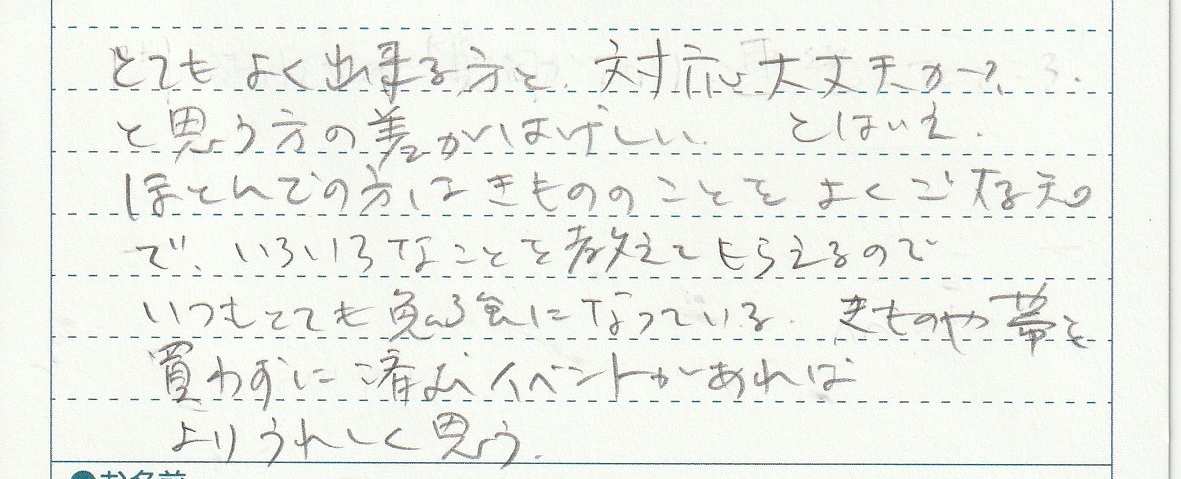 とてもよく出来る方と、対応大丈夫か?
と思う方の差がはげしい。とはいえ、
ほとんどの方はきもののことをよくご存知の
で、いろいろなことを教えてもらえるので
いつもとても勉強になっている。きものや帯を
買わずに済むイベントがあれば
よりうれしく思う。
●お名前